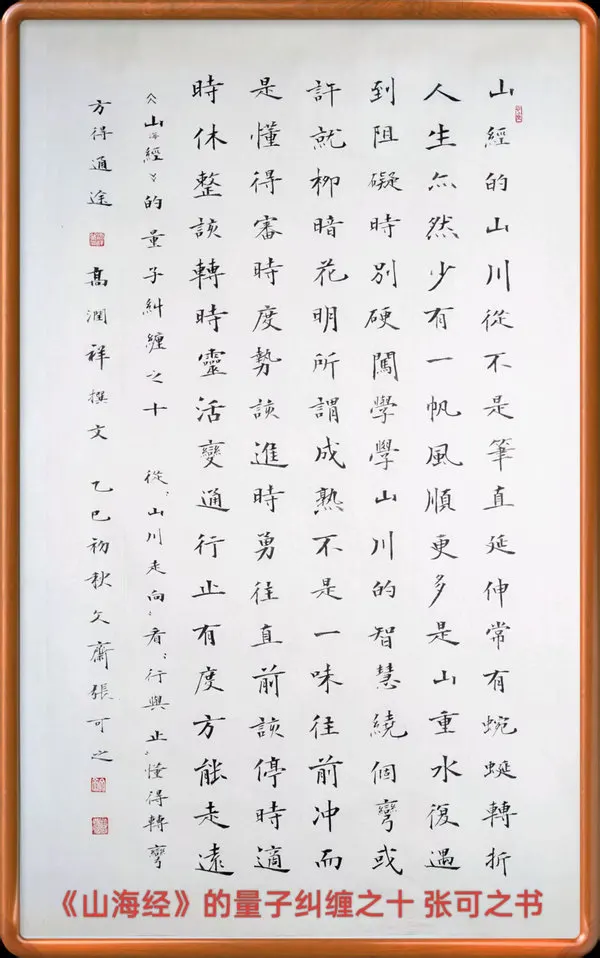 山經的山川從不是筆直延伸常有蜿蜒轉折
人生亦然少有一帆風順更多是山重水復遇
到阻礙時別硬闖學學山川的智慧繞個彎或
許就柳暗花明所謂成熟不是一味往前冲而
是懂得審時度勢該進時勇往直前該停時適
時休整該轉時靈活變通行止有度方能走遠
《山海經》的量子糾纏之十 從“山川走向”看“行與止”懂得轉彎
方得通途 高潤祥撰文 乙巳初秋齋張可之
《山海经》的量子纠缠之十 张可之书